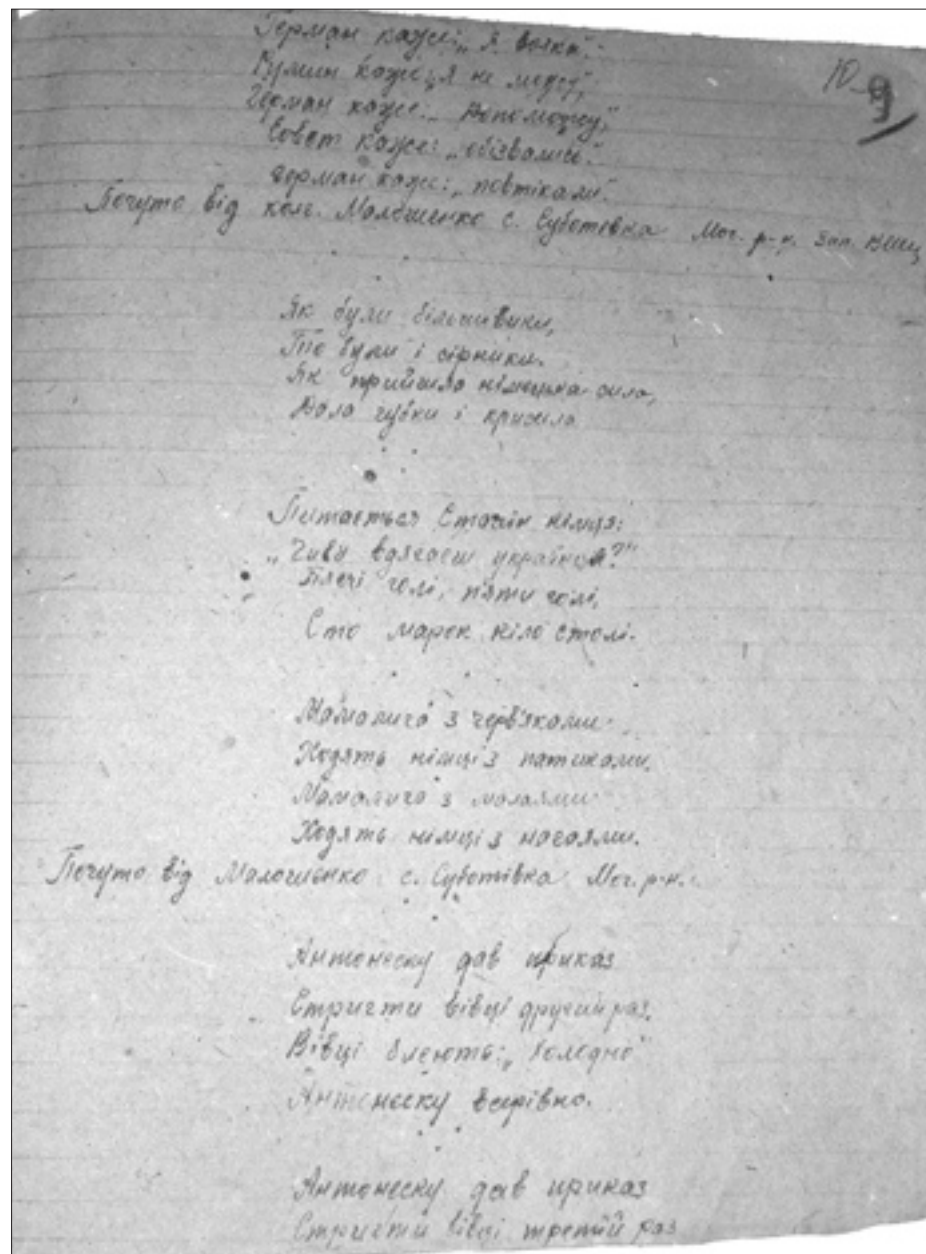 Герман каже: „Я воюю".
Румин каже: „я не можу",
Герман каже: „Допоможу",
Совет каже: „обізвались".
Герман каже: „повтікали".
Почуто від колг. Малошенко с. Суботівка Мог. р-н. Зап.
10
9
Як були більшивики,
То були і сірники.
Як прийшла німецька сила,
Дала губки і кришила
Питається Сталін німця:
„Чиви вдягаєш українця?"
Плечі голі, пяти голі,
Сто марок кіло солі.
Мамалига з черв'яками
Ходять німці з патиками.
Мамалига з малаями
Ходять німці з нагаями.
Почуто від Малошенко с. Суботівка Мог. р-н.
Антонеску дав приказ
Стригти вівці другий раз.
Вівці блеють: „Холодно"
Антонеску всерівно.
Антонеску дав приказ
Стригти вівці третій раз